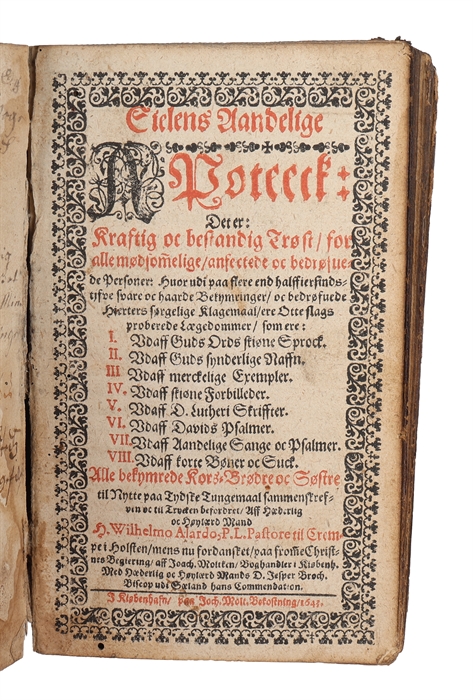 Sielens Aandelige
APoteeck:
Det er:
Kraftig oc bestandig Trøst / for
alle mødsom̃elige / anfectede oc bedrøfue-
de Personer: Huor udi paa flere end halffierfinds-
tyfve svare oc haarde Bekymringer / oc bedrøfuede
Hierters sørgelige Klagemaal / ere Otte slags
proberede Lægedommer / som ere:
I. Vdaff Guds Ords skiøne Sprock.
II. Vdaff Guds synderlige Naffn.
III Vdaff merckelige Exempler.
IV. Vdaff skiøne Forbilleder.
V. Vdaff D. Lutheri Skriffter.
VI. Vdaff Davids Psalmer.
VII. Vdaff Aandelige Sange oc Psalmer.
VIII. Vdaff korte Bøner oc Suck.
Alle bekymrede Korß-Brødre oc Søstre
til Nytte paa Tydske Tungemaal sammenskref-
ven oc til Trycken befordret / Aff Hæderlig
oc Høylærd Mand
H. Wilhelmo Alardo, P. L. Pastore til Crem-
pe i Holsten / mens nu fordansket / paa from̃e Christ-
nes Begiering / aff Joach. Moltken / Boghandler i Kiøbenh.
Med Hæderlig oc Høylærd Mands D. Jesper Broch.
Biscop udi Sæland hans Commendation.
J Kiøbenhafn / paa Joch. Molt. Bekostning / 1643.